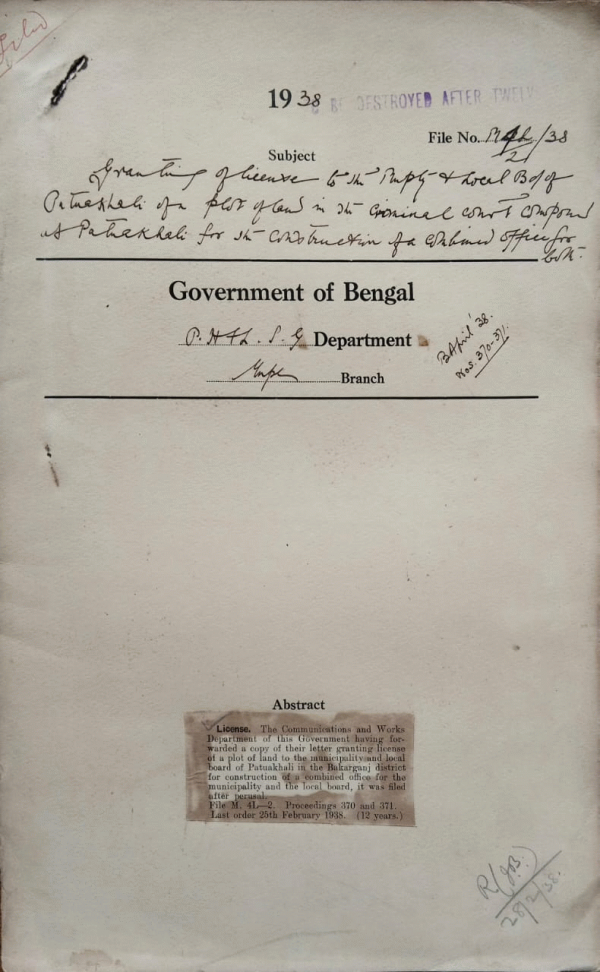 1938
BE DESTROYED AFTER TWELV
File No. M4L/2/38
Subject
Granting of license to the Mpty & Local Bd of
Patuakhali of a plot of land in the criminal court compound
at Patuakhali for the construction of a combined office for
both.
Government of Bengal
P.H & L. S. G Department
B April '38.
Nos. 370-371.
Branch
Abstract
License. The Communications and Works
Department of this Government having for-
warded a copy of their letter granting license
of a plot of land to the municipality and local
board of Patuakhali in the Bakarganj district
for construction of a combined office for the
municipality and the local board, it was filed
after perusal.
File M. 4L—2. Proceedings 370 and 371.
Last order 25th February 1938. (12 years.)
28/2/38.